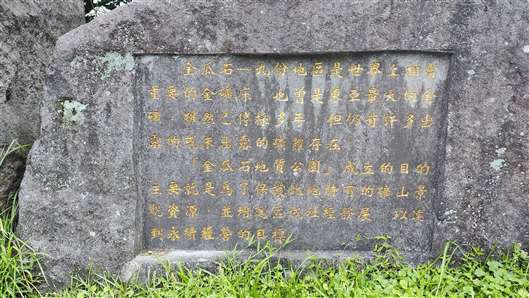 金瓜石—九份地區是世界上相當
重要的金礦床，也曾是東亞最大的金
礦，雖然已停採多年，但仍有許多出
露而或未出露的礦體存在。
「金瓜石地質公園」成立的目的
主要就是為了保護此地特有的礦山景
觀資源，並增進區域社經發展，以達
到永續經營的目標。